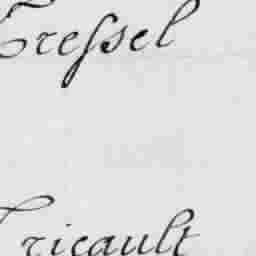 Tressel
Tricault